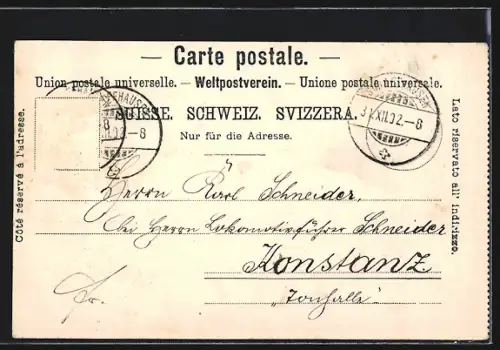 — Carte postale. —
Union postale universelle. — Weltpostverein. — Unione postale universale.
SUISSE. SCHWEIZ. SVIZZERA.
Nur für die Adresse.
Côté réservé à l'adresse.
Lato riservato all' indirizzo.
31.XII.02.-8
Herrn Karl Schneider,
bei Herrn Lokomotivführer Schneider
Konstanz
"Tonhalle"
fr.